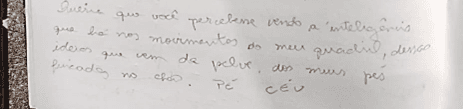 Queria que você percebesse vendo a inteligência
que há nos movimentos do meu quadril, dessas
ideias que vem da pelve, dos meus pés
fincados no chão. PÉ CÉU